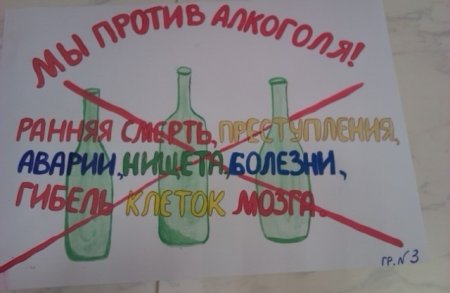 МЫ ПРОТИВ АЛКОГОЛЯ!
РАННЯЯ СМЕРТЬ, ПРЕСТУПЛЕНИЯ,
АВАРИИ, НИЩЕТА, БОЛЕЗНИ,
ГИБЕЛЬ КЛЕТОК МОЗГА.
ГР. N 3